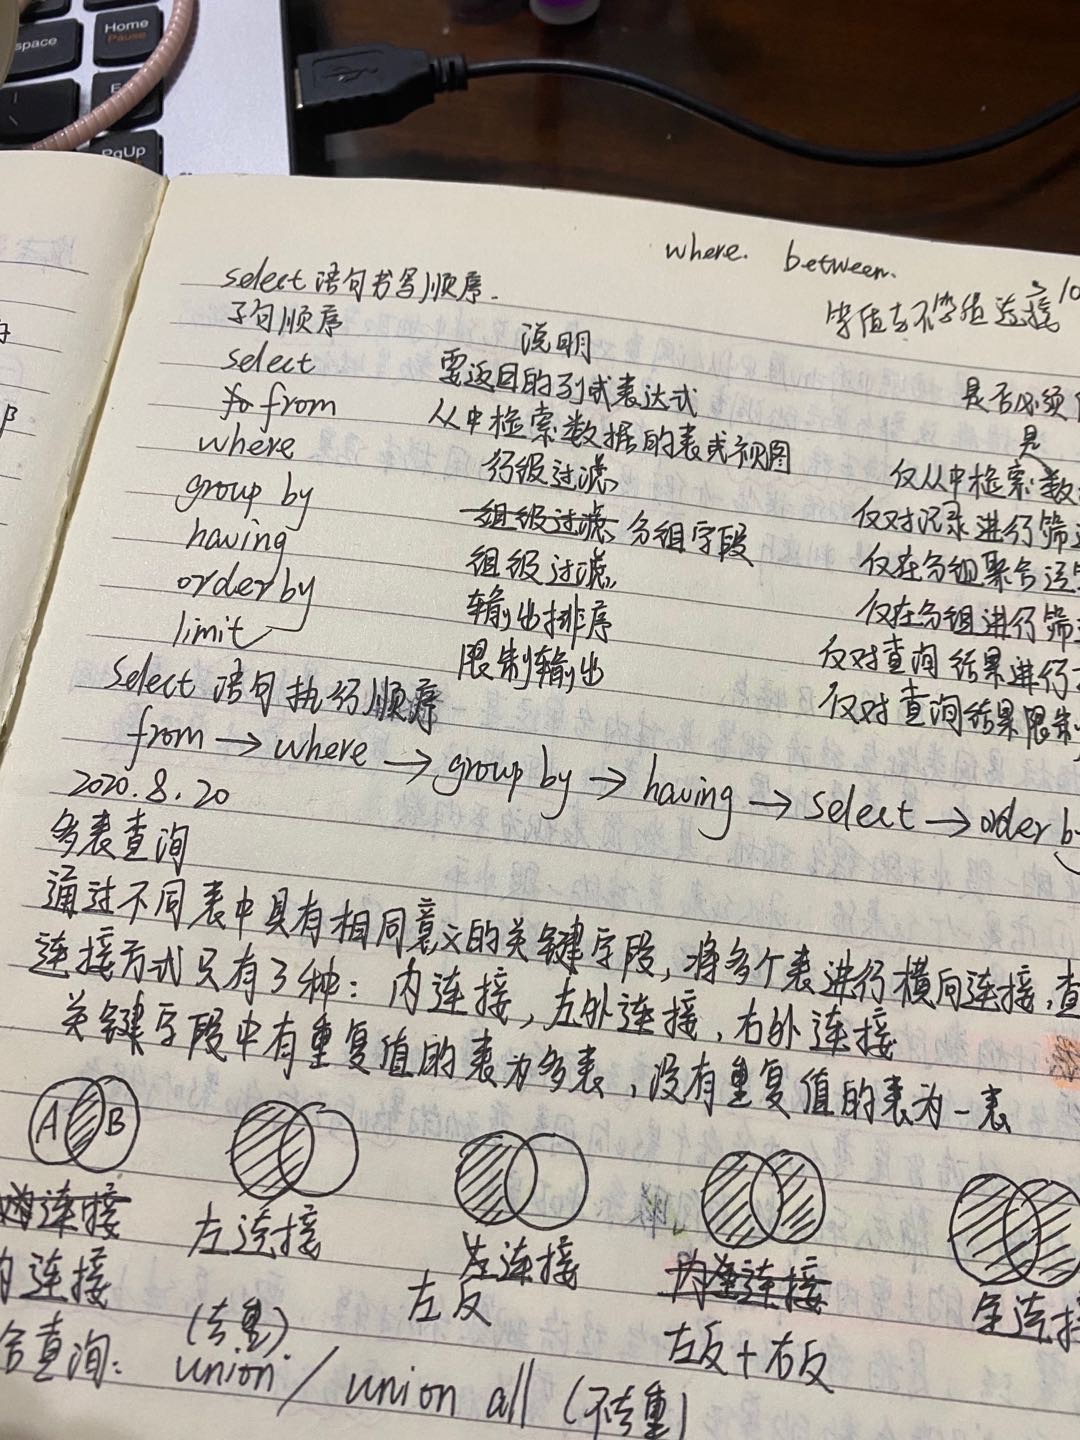 space
Home
Pause
PgUp
where. between.
等值与不等值连接
select 语句书写顺序.
子句顺序 说明 是否必须
select 要返回的列或表达式 是
from 从中检索数据的表或视图 仅从中检索数
where 行级过滤 仅对记录进行筛
group by 组级过滤 分组字段 仅在分组聚合
having 组级过滤 仅在分组进行筛
order by 输出排序 仅对查询结果进行
limit 限制输出 仅对查询结果限制
select 语句执行顺序
from → where → group by → having → select → order by
2020.8.20
多表查询
通过不同表中具有相同意义的关键字段,将多个表进行横向连接,查
连接方式只有3种: 内连接,左外连接,右外连接
关键字段中有重复值的表为多表,没有重复值的表为一表
A B
内连接 左连接 左连接 内连接 全连接
内连接 左反 左反+右反
(去重)
合查询: union / union all (不去重)